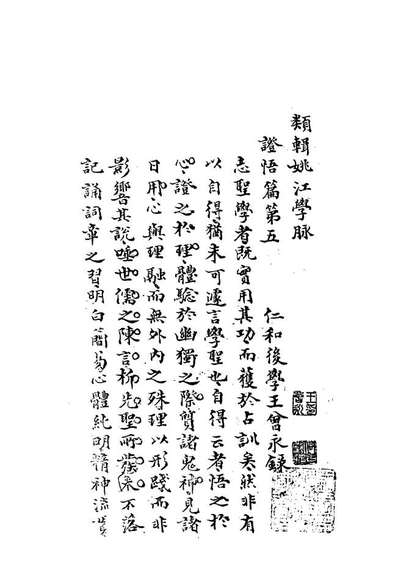 類輯姚江學脉
證悟篇第五
仁和後學王曾永錄
志聖學者既實用其功而獲於占訓矣然非有
以自得猶未可遽言學聖也自得云者悟之於
心證之於理體驗於幽獨之際質諸鬼神見諸
日用心與理融而無外內之殊理以形踐而非
影響其說唾世儒之陳言栁先聖所不落
記誦詞章之習明白簡易心體純明精神流貫